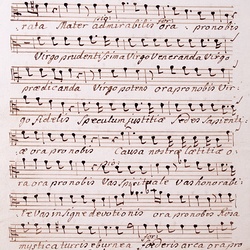 rata Mater admirabilis ora pronobis
Virgo prudentissima Virgo Veneranda Virgo
prædicanda Virgo potens ora pronobis Vir:
go fidelis Speculum justitiæ Sedes Sapienti:
æ ora pronobis Causa nostræ lætitiæ o:
ra ora pronobis Vas Spirituale Vas honorabi:
le Vas insigne devotionis ora pronobis Rosa
mystica turris eburnea fœderis arca ora pr